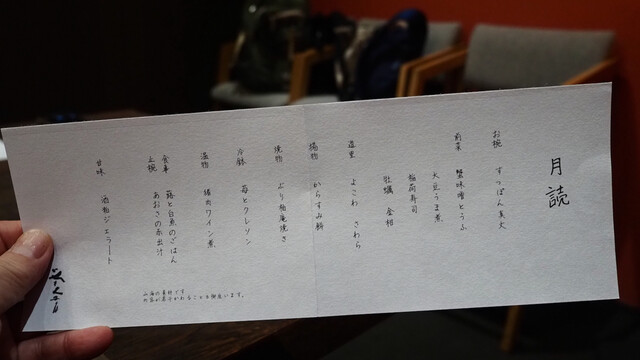 月読
お椀 すっぽん真丈
前菜 蟹味噌とうふ
大豆うま煮
稲荷寿司
牡蠣 金柑
造里 よこわ さわら
揚物 からすみ餅
焼物 ぶり柚庵焼き
冷鉢 苺とクレソン
温物 猪肉ワイン煮
食事 蕗と白魚のごはん
止椀 あおさの赤出汁
甘味 酒粕ジェラート